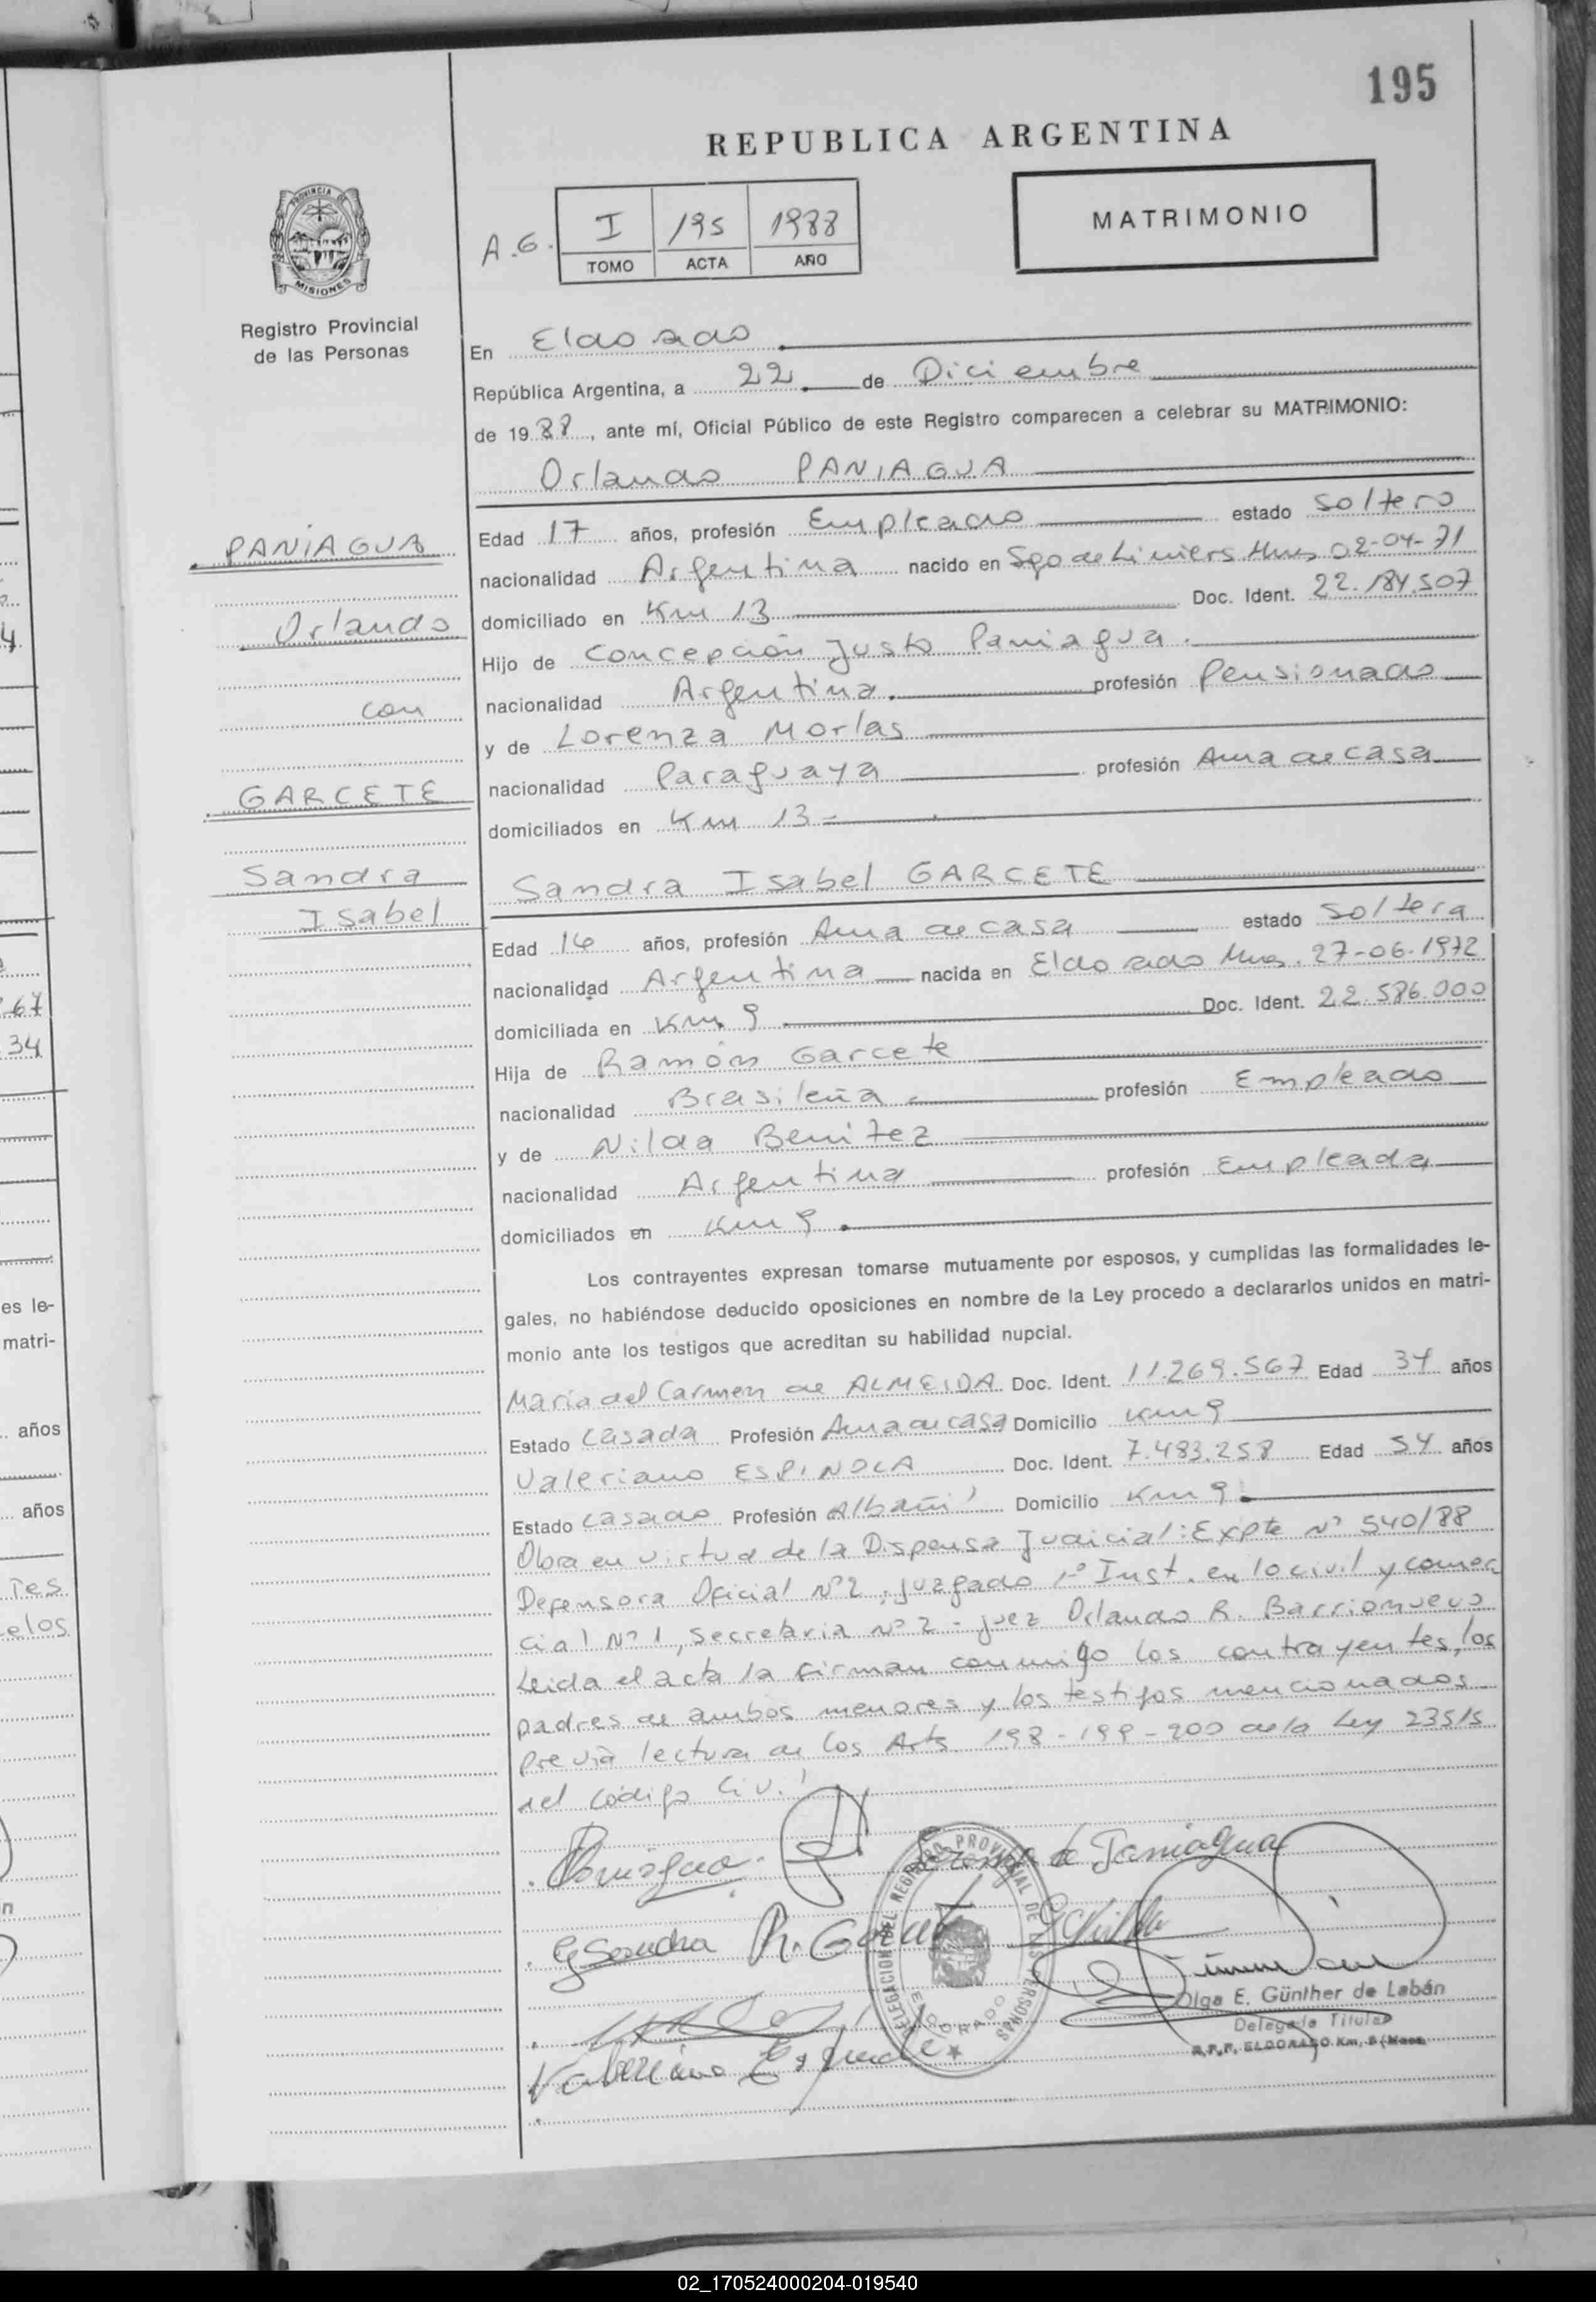 195
REPUBLICA ARGENTINA
MATRIMONIO
A.G.
I 195 1988
TOMO ACTA AÑO
PROVINCIA DE
MISIONES
Registro Provincial
de las Personas
PANIAGUA
Orlando
con
GARCETE
Sandra
Isabel
En Eldorado
República Argentina, a 22 de Diciembre
de 1988, ante mí, Oficial Público de este Registro comparecen a celebrar su MATRIMONIO:
Orlando PANIAGUA
Edad 17 años, profesión Empleado estado Soltero
nacionalidad Argentina nacido en Sgo de Liniers Mnes 02-04-71
domiciliado en Km 13 Doc. Ident. 22.184.507
Hijo de Concepción Justo Paniagua.
nacionalidad Argentina. profesión Pensionado
y de Lorenza Morlas
nacionalidad Paraguaya profesión Ama de casa
domiciliados en Km 13
Sandra Isabel GARCETE
Edad 16 años, profesión Ama de casa estado Soltera
nacionalidad Argentina nacida en Eldorado Mnes. 27-06-1972
domiciliada en Km 9 Doc. Ident. 22.586.000
Hija de Ramón Garcete
nacionalidad Brasileña profesión Empleado
y de Nilda Benitez
nacionalidad Argentina profesión Empleada
domiciliados en Km 9
Los contrayentes expresan tomarse mutuamente por esposos, y cumplidas las formalidades le-
gales, no habiéndose deducido oposiciones en nombre de la Ley procedo a declararlos unidos en matri-
monio ante los testigos que acreditan su habilidad nupcial.
María del Carmen de ALMEIDA Doc. Ident. 11.269.567 Edad 34 años
Estado Casada Profesión Ama de casa Domicilio Km 9
Valeriano ESPINOLA Doc. Ident. 7.483.258 Edad 54 años
Estado Casado Profesión Albañil Domicilio Km 9
Obra en virtud de la Dispensa Judicial: Expte Nº 540/88
Defensora Oficial Nº2, Juzgado 1º Inst. en lo civil y comer
cial Nº 1, Secretaria Nº 2 - Juez Orlando R. Barrionuevo
Leida el acta la firman conmigo los contrayentes, los
padres de ambos menores y los testigos mencionados
previa lectura de los Arts 198-199-200 de la Ley 23515
del Código Civil
Paniagua.
Lorenza de Paniagua
G Sandra R. Garcete
DELEGACION DEL REGISTRO PROVINCIAL DE LAS PERSONAS
ELDORADO
Olga E. Günther de Labán
Delegada Titular
R.P.P. ELDORADO Km. 9 (Mnes.
Valeriano
67
34
es le-
matri-
años
años
Tes
elos
02_170524000204-019540